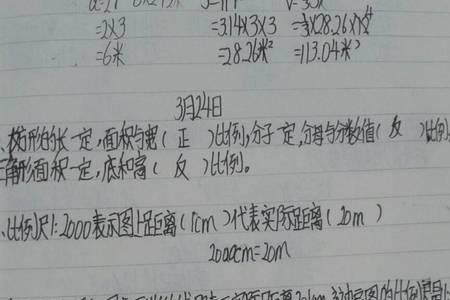 =2×3 =3.14×3×3 =⅓×28.26×
=6米 =28.26米² =113.04米³
3月24日
、长方形的长一定,面积与宽( 正 )比例,分子一定,分母与分数值( 反 )比例
三角形面积一定,底和高( 反 )比例。
、比例尺1:2000表示图上距离(1cm)代表实际距离(20m)
2000cm=20m